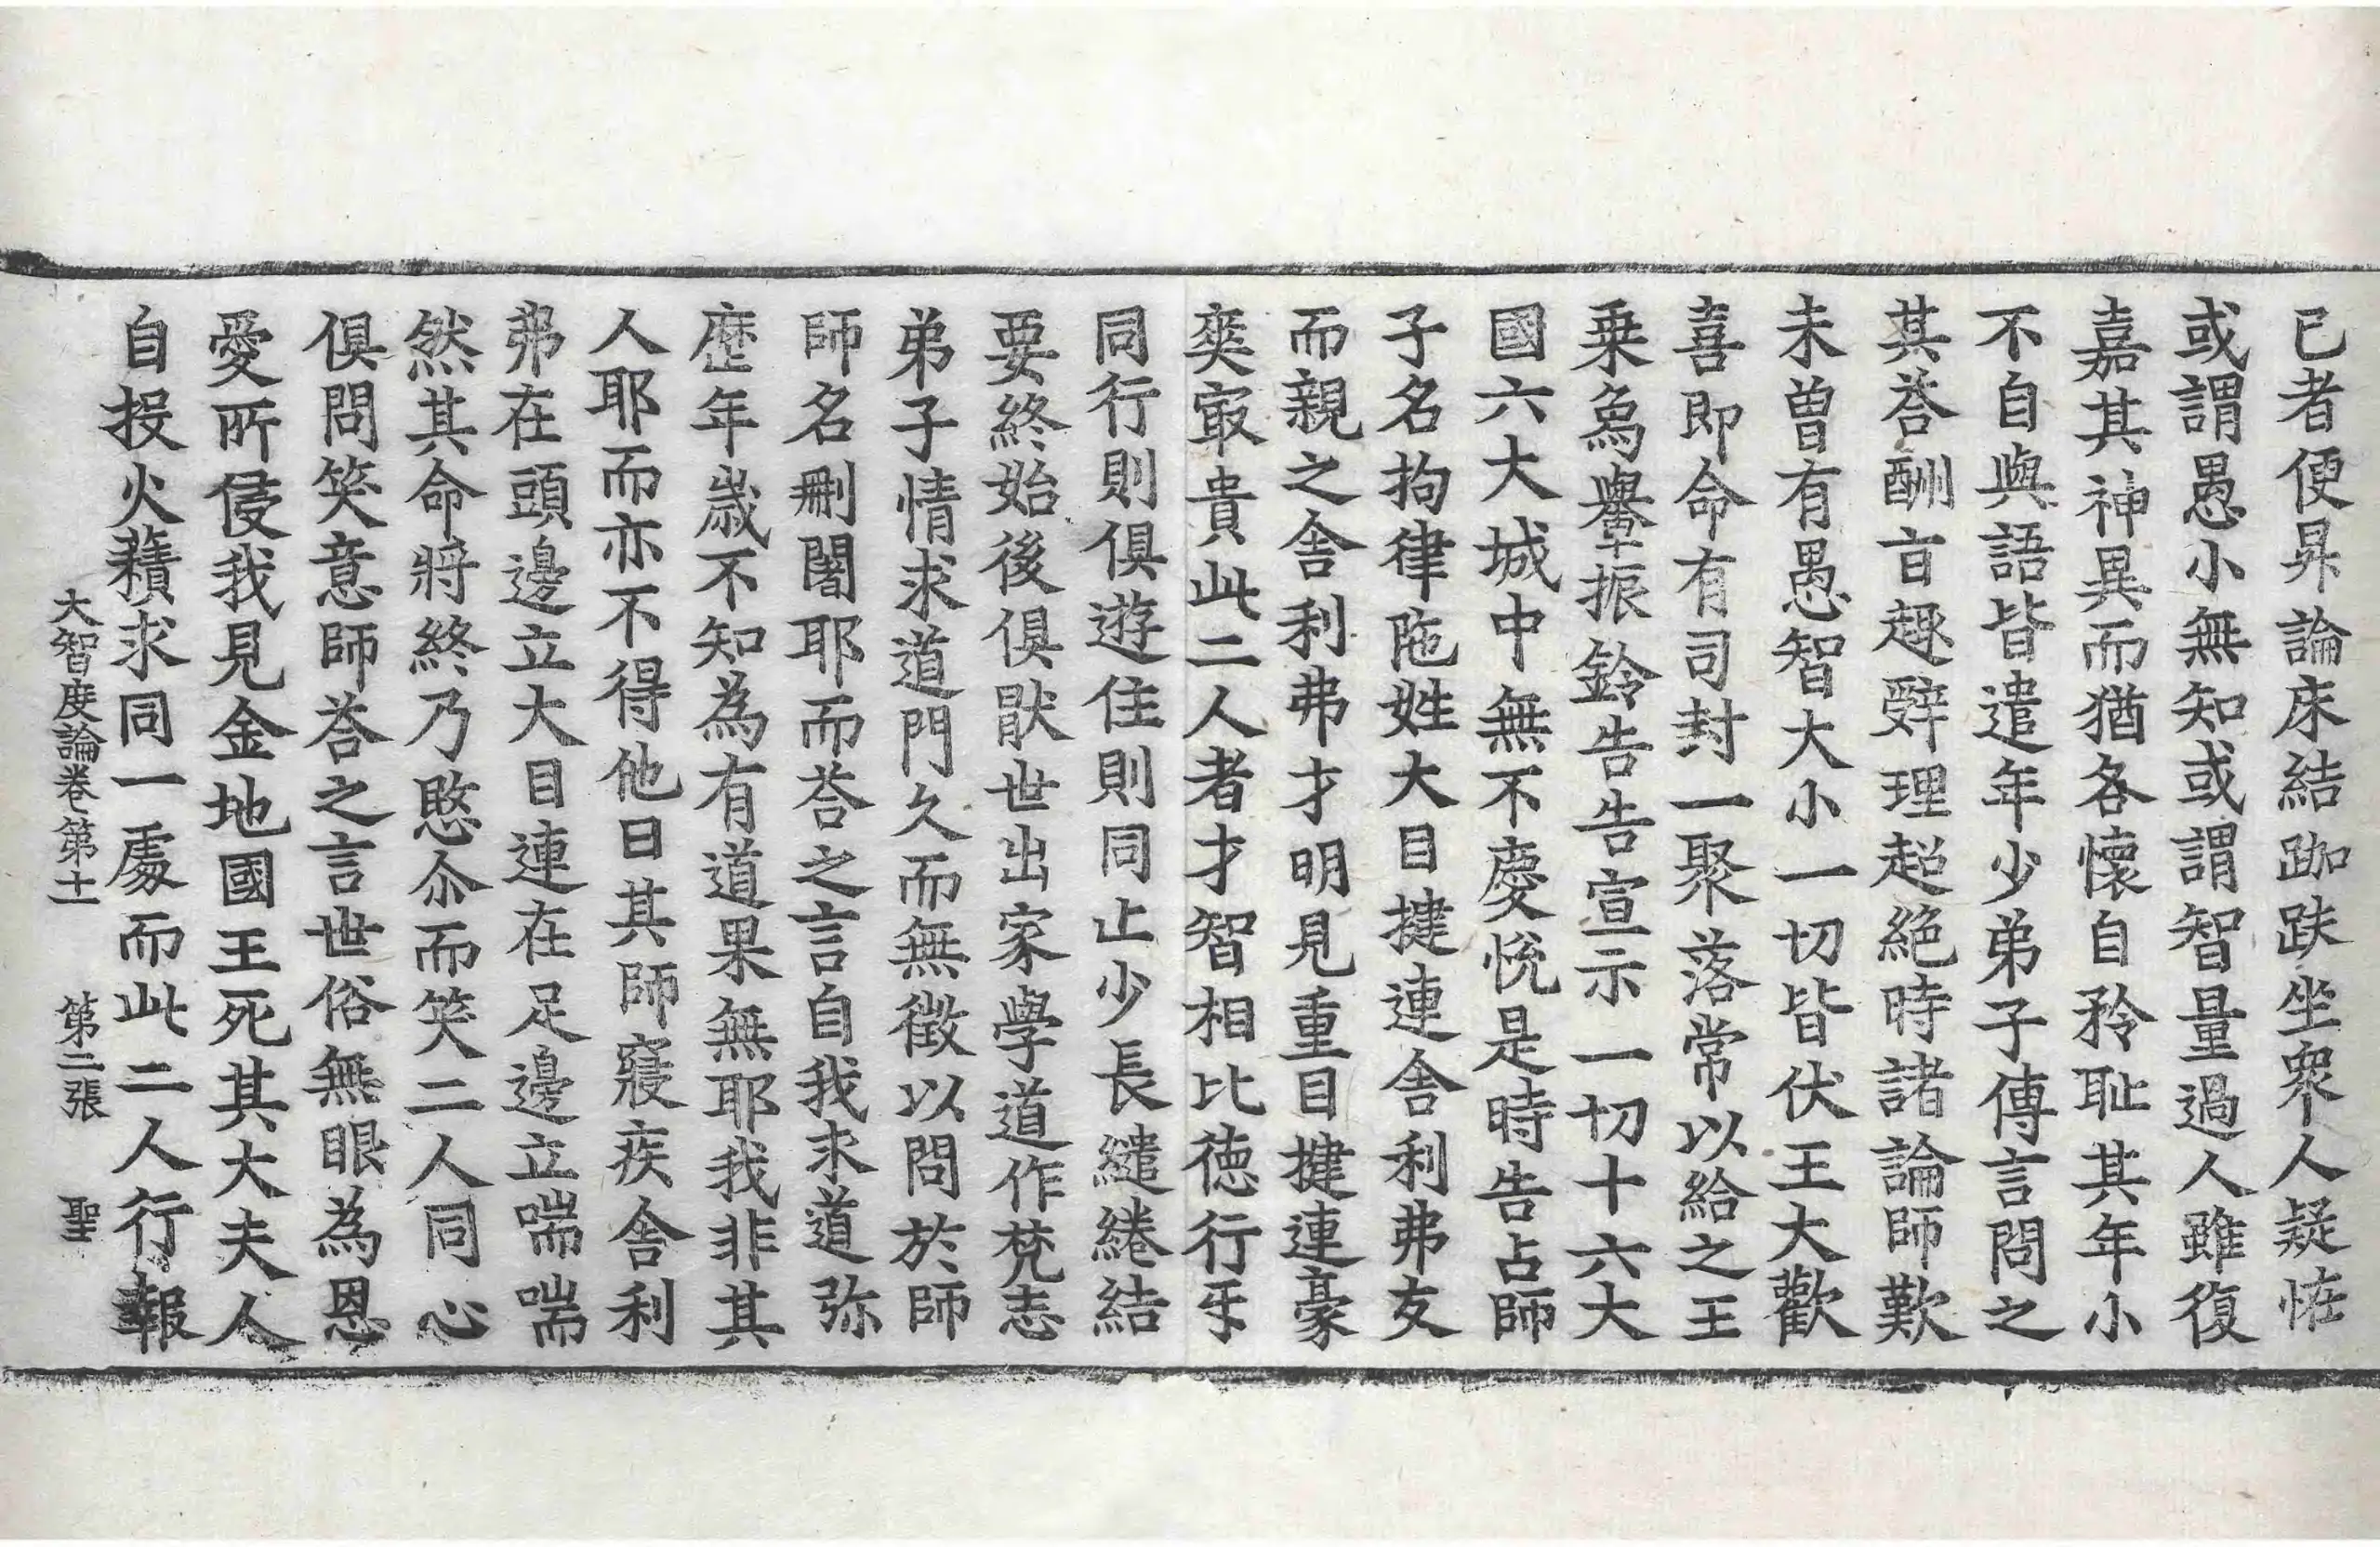 已者便昇論床結跏趺坐衆人疑怪
或謂愚小無知或謂智量過人雖復
嘉其神異而猶各懷自矜恥其年小
不自與語皆遣年少弟子傳言問之
其荅酬旨趣辭理超絕時諸論師歎
未曾有愚智大小一切皆伏王大歡
喜即命有司封一聚落常以給之王
乗象轝振鈴告告宣示一切十六大
國六大城中無不慶悅是時告占師
子名拘律陁姓大目揵連舍利弗友
而親之舍利弗才明見重目揵連豪
爽㝡貴此二人者才智相比德行㸦
同行則俱遊住則同止少長繾綣結
要終始後俱猒世出家學道作梵志
弟子情求道門久而無徵以問於師
師名刪闍耶而荅之言自我求道弥
歷年歲不知為有道果無耶我非其
人耶而亦不得他日其師寢疾舍利
弗在頭邊立大目連在足邊立喘喘
然其命將終乃愍尒而笑二人同心
俱問笑意師荅之言世俗無眼為恩
愛所侵我見金地國王死其大夫人
自投火𧂐求同一處而此二人行報
大智度論卷第十一 第二張 聖